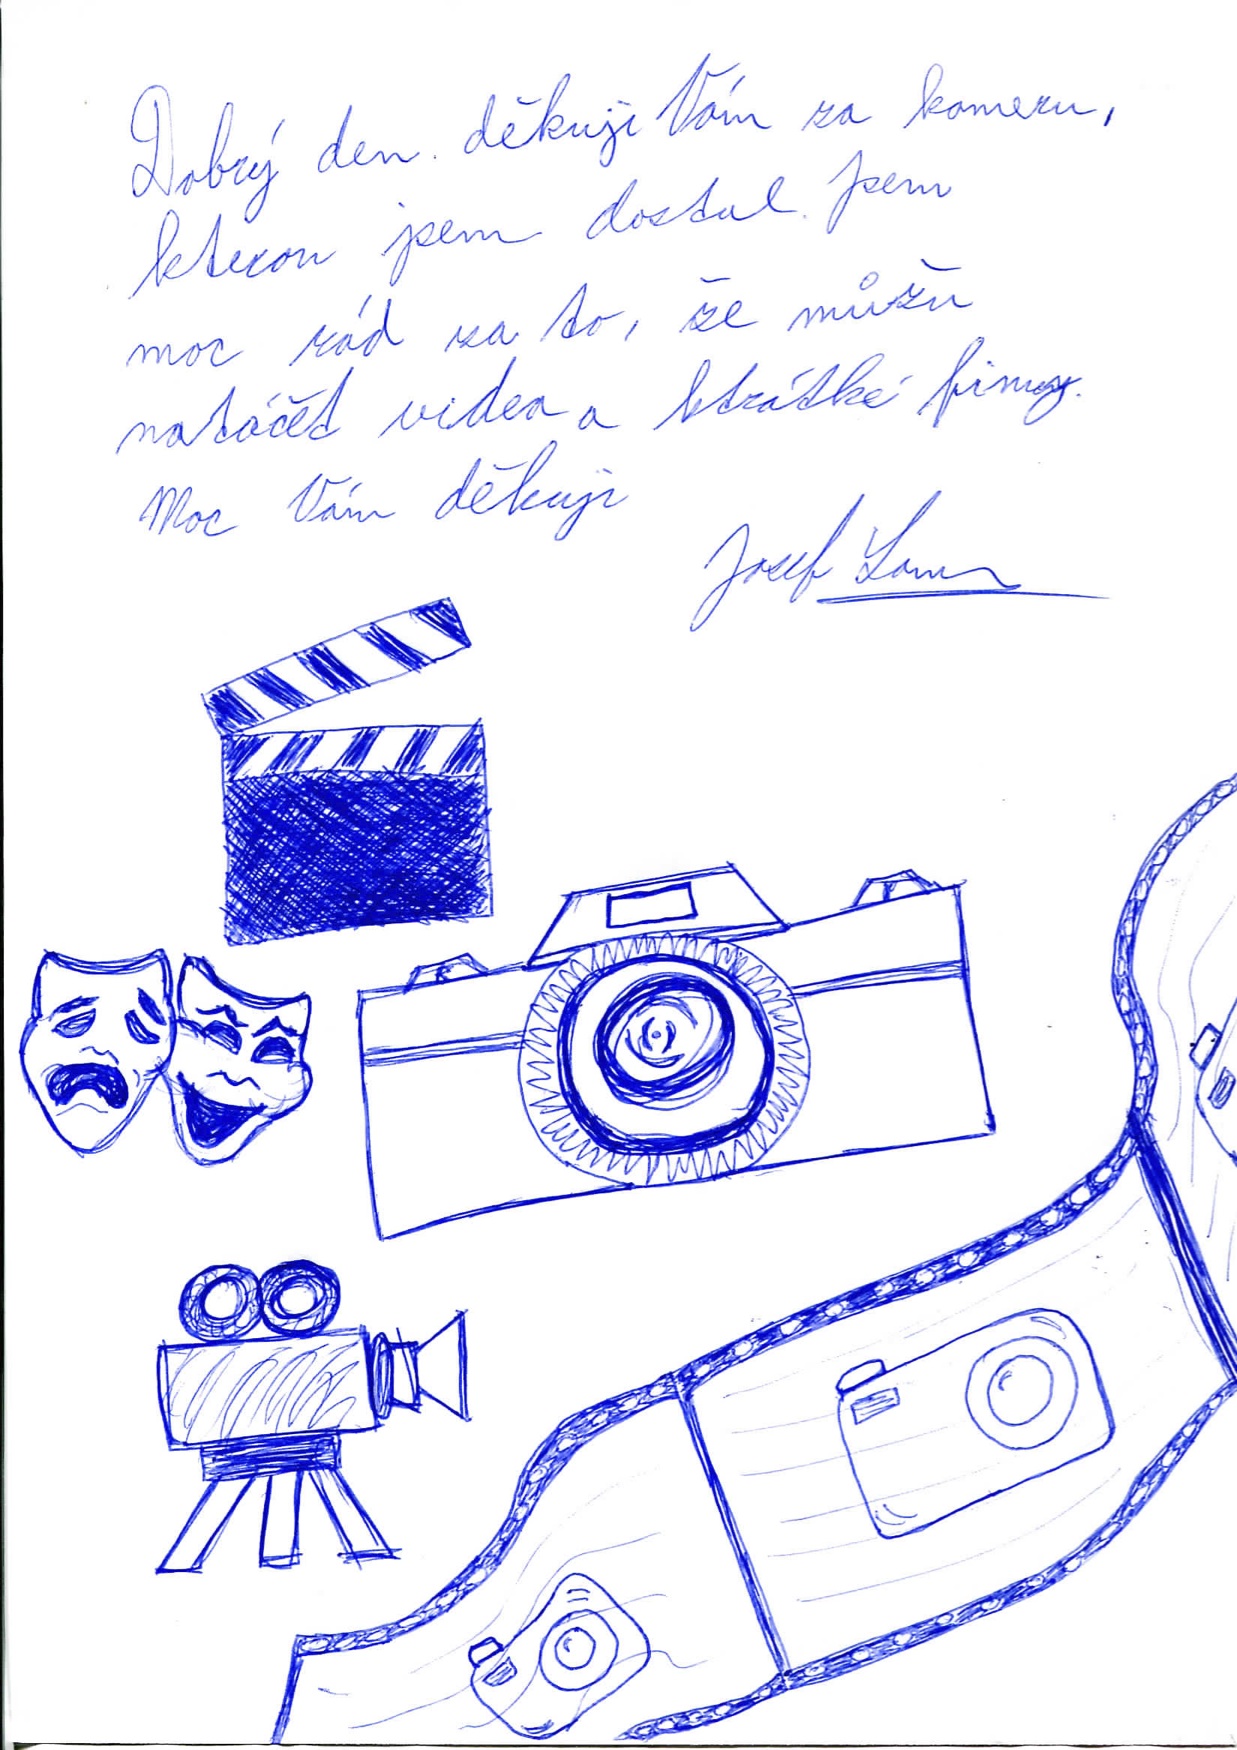 Dobrý den. děkuji Vám za kameru,
kterou jsem dostal. Jsem
moc rád za to, že můžu
natáčet videa a krátké fimy.
Moc Vám děkuji
Josef